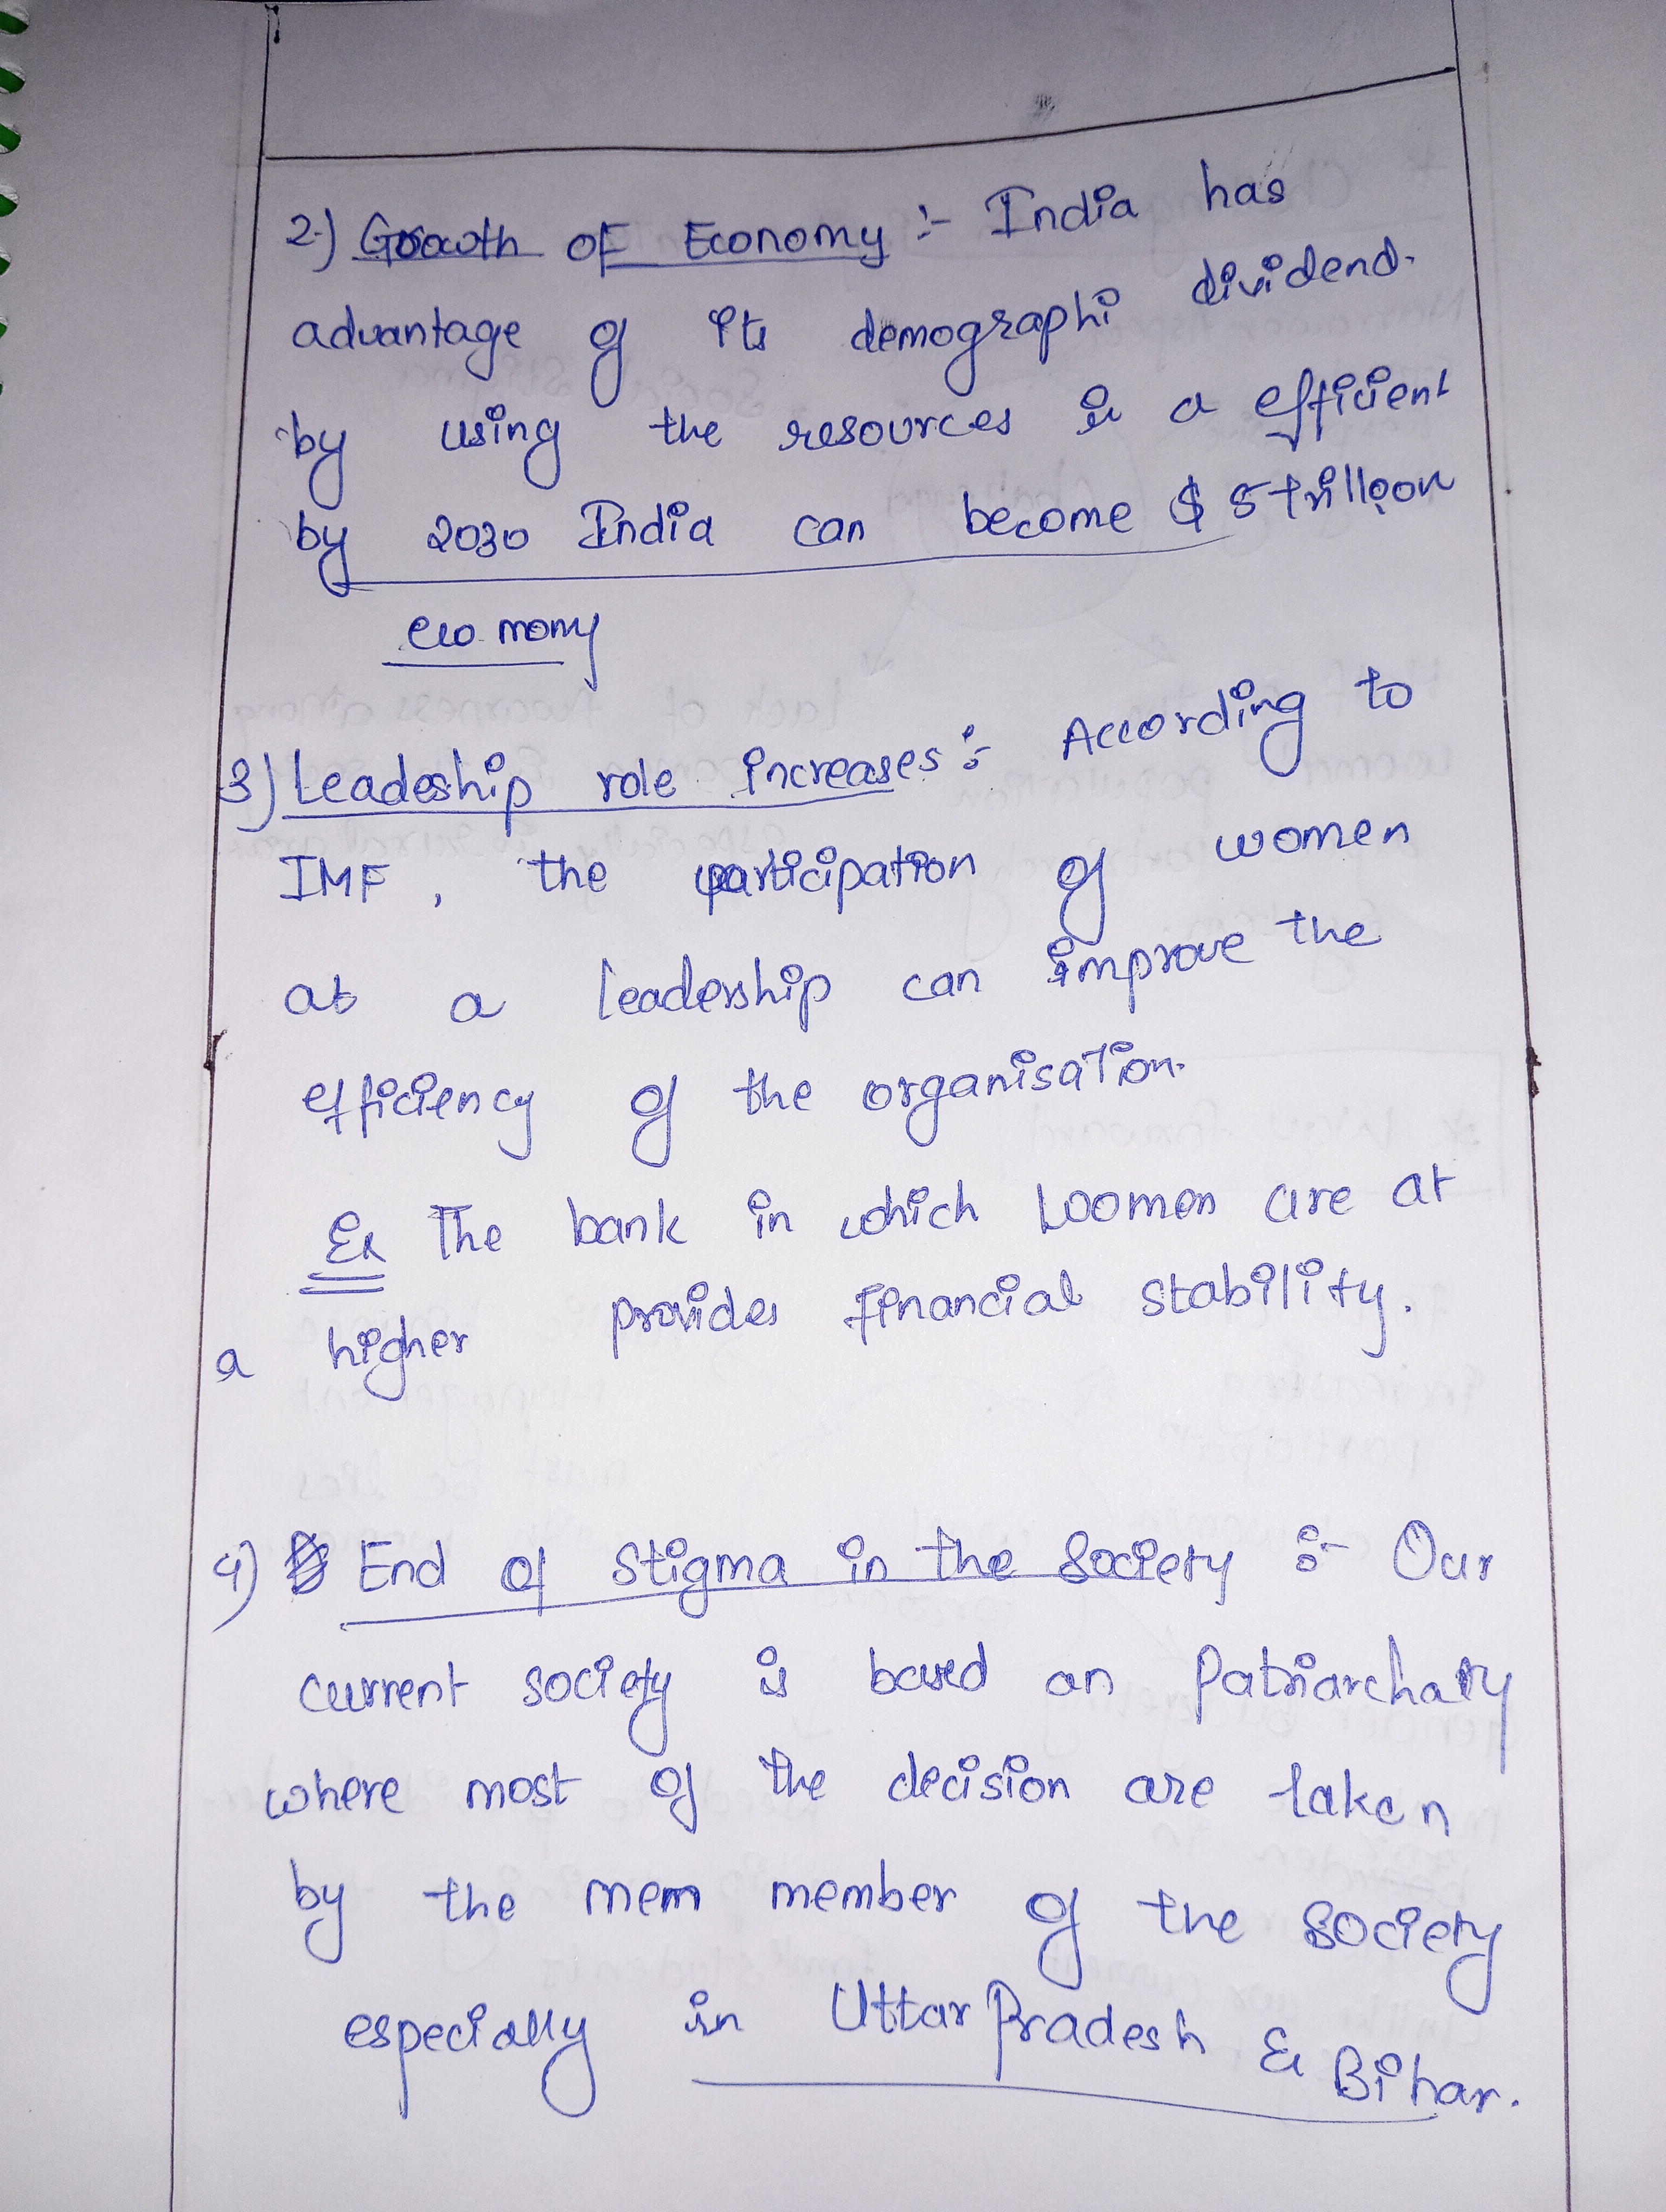 2.) Growth of Economy :- India has
advantage of its demographi dividend.
by using the resources is a efficient
by 2030 India can become $ 5 trillion
economy
3) Leadeship role increases :- According to
IMF, the participation of women
as a leadership can improve the
efficiency of the organisation.
Ex The bank in which women are at
a higher provides financial stability.
4) End of Stigma in the Society :- Our
current society is based on Patriarchary
where most of the decision are taken
by the mem member of the society
especially in Uttar Pradesh & Bihar.